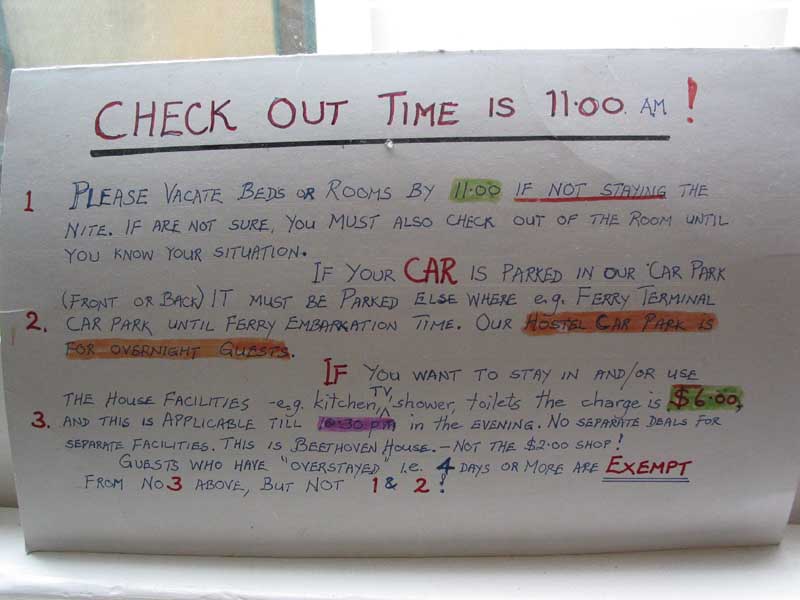 CHECK OUT TIME IS 11.00 AM !
1 PLEASE VACATE BEDS OR ROOMS BY 11.00 IF NOT STAYING THE
NITE. IF ARE NOT SURE, YOU MUST ALSO CHECK OUT OF THE ROOM UNTIL
YOU KNOW YOUR SITUATION.
IF YOUR CAR IS PARKED IN OUR CAR PARK
(FRONT OR BACK) IT MUST BE PARKED ELSE WHERE e.g. FERRY TERMINAL
2. CAR PARK UNTIL FERRY EMBARKATION TIME. OUR HOSTEL CAR PARK IS
FOR OVERNIGHT GUESTS.
IF YOU WANT TO STAY IN AND/OR USE
THE HOUSE FACILITIES -e.g. kitchen, TV, shower, toilets the charge is $6.00,
3. AND THIS IS APPLICABLE TILL 10.30 pm in the EVENING. NO SEPARATE DEALS FOR
SEPARATE FACILITIES. THIS IS BEETHOVEN HOUSE. - NOT THE $2.00 SHOP!
GUESTS WHO HAVE "OVERSTAYED" i.e. 4 DAYS OR MORE ARE EXEMPT
FROM NO 3 ABOVE, BUT NOT 1 & 2!